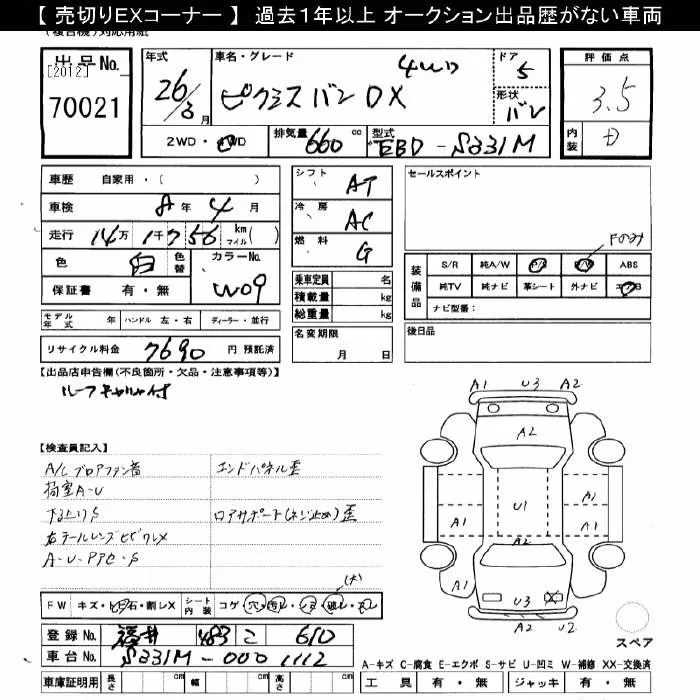 【 売切りEXコーナー 】 過去１年以上 オークション出品歴がない車両
(複合機)対応用紙
出品No.
[2012]
70021
年式
26/3月
車名・グレード
4WD
ピクシスバン DX
ドア
5
形状
バン
2WD・4WD
排気量 660 cc
型式 EBD-S331M
評価点
3.5
内装
D
車歴 自家用・( )
車検 8年 4月
走行 14万 1千 756 km マイル( )
色 白 色替
カラーNo. W09
保証書 有・無
モデル年式 年 ハンドル 左・右 ディーラー・並行
リサイクル料金 7690 円 預託済
シフト AT
冷房 AC
燃料 G
乗車定員 名
積載量 kg
総重量 kg
名変期限
月 日
セールスポイント
Fのみ
装備品
S/R 純A/W P/S P/W ABS
純TV 純ナビ 革シート 外ナビ エアB
ナビ型番:
後日品
【出品店申告欄(不良箇所・欠品・注意事項等)】
ルーフキャリャ付
【検査員記入】
A/C ブロアファン音 エンドパネル歪
荷室A-U
下回りS ロアサポート(ネジ止め)歪
右テールレンズヒビワレX
A-U-PアセS
(大)
FW キズ・ヒ石・割レX シート内装 コゲ・穴・汚レ・シミ・破レ・スレ
登録No. 福井 483 こ 610
車台No. S331M-0001112
車庫証明用 長さ cm 幅 cm 高さ cm
A1 U3 A2
A2
U1
A1 A1
A1 A1
A2
A1
U3 X
A1 U2
スペア
A-キズ C-腐食 E-エクボ S-サビ U-凹ミ W-補修 XX-交換済
工具 有・無 ジャッキ 有・無